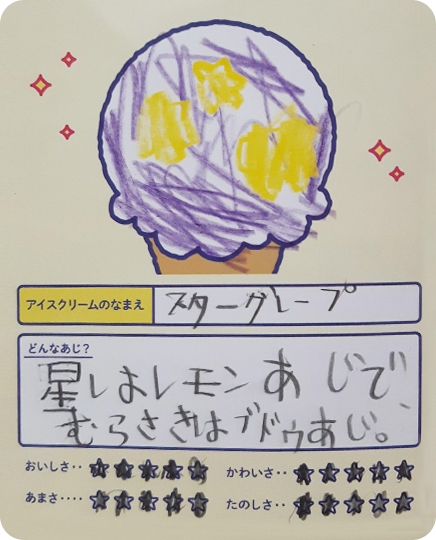 アイスクリームのなまえ
スターグレープ
どんなあじ?
星しはレモンあじで、
むらさきはブドウあじ。
おいしさ‥ ★★★★★
かわいさ‥ ★★★★★
あまさ‥‥ ★★★★★
たのしさ‥ ★★★★★